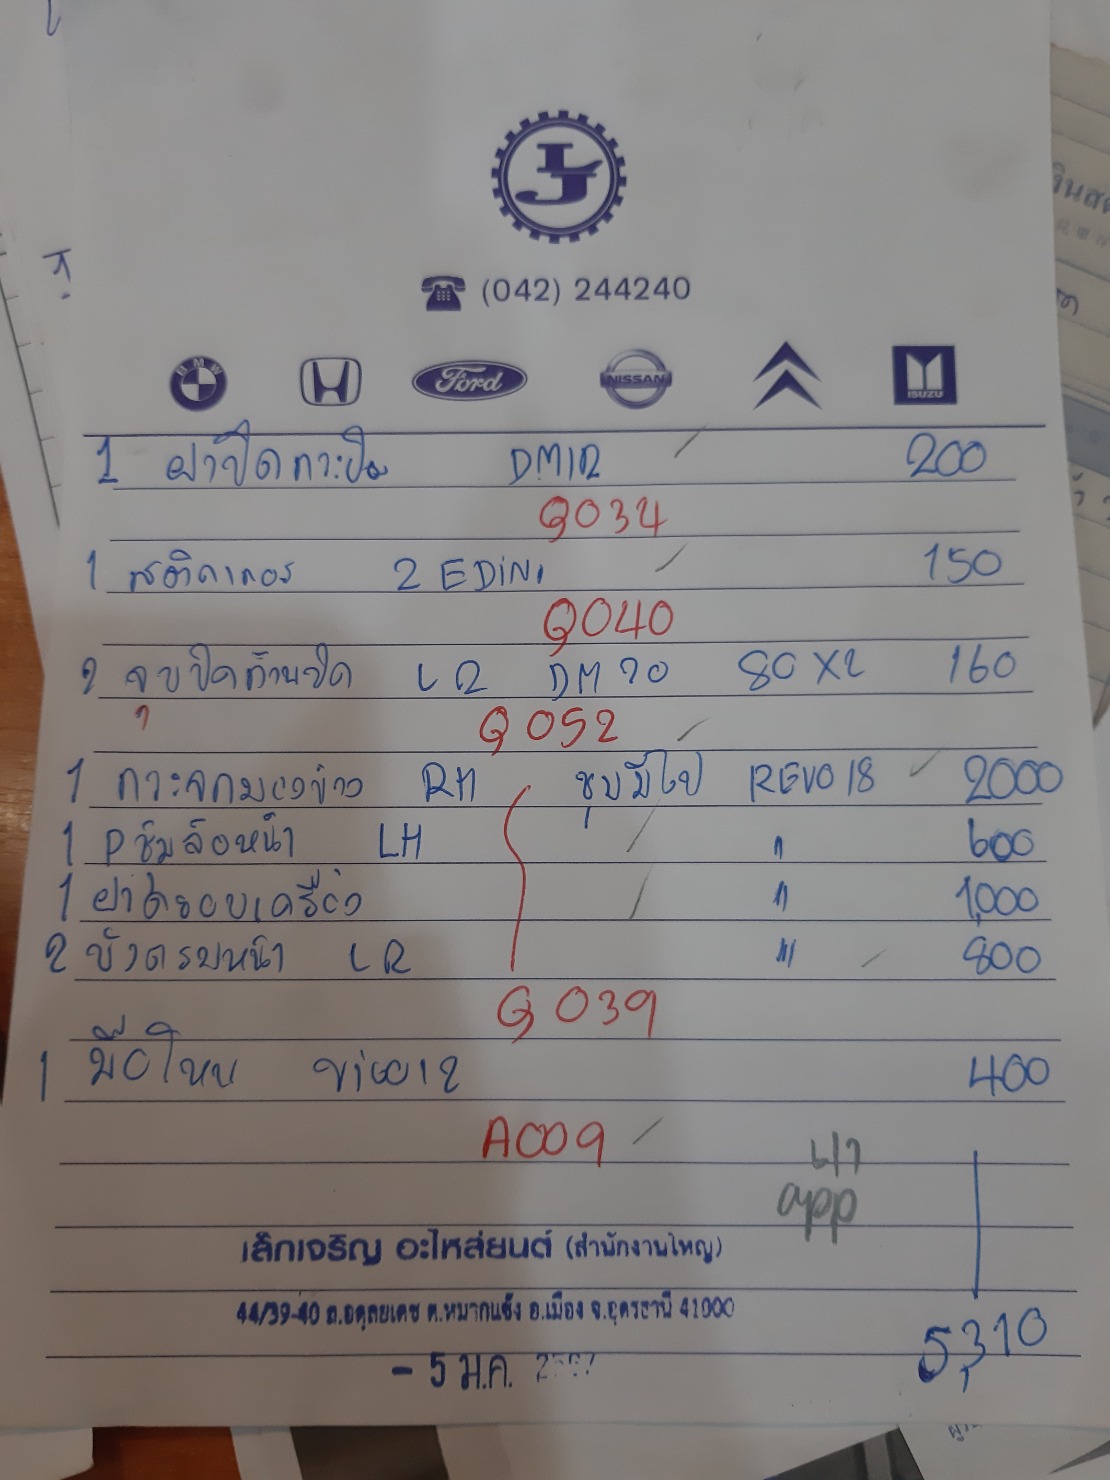 (042) 244240
BMW Ford NISSAN ISUZU
1 ฝาปิดกระปุก DM12 200
Q034
1 สติกเกอร์ 2 EDiNi 150
Q040
2 จุบปิดท้านปิด LR DM70 80X2 160
Q052
1 กระจกมองข้าง RH ชุบมีไฟ REVO 18 2000
1 Pซุ้มล้อหน้า LH " 600
1 ฝาครอบเครื่อง " 1,000
2 บังตรมหน้า LR " 800
Q039
1 มือโหน 400
A009
app
เล็กเจริญ อะไหล่ยนต์ (สำนักงานใหญ่)
44/39-40 ถ.อดุลยเดช ต.หมากแข้ง อ.เมือง จ.อุดรธานี 41000
5,310
- 5 ม.ค.